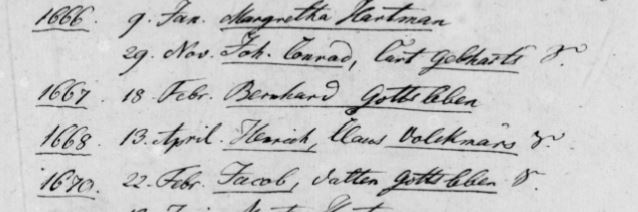 1666. 9. Jan. Margretha Hartman
29. Nov. Joh. Conrad, Curt Gebharts S.
1667. 18. Febr. Bernhard Gottsleben
1668. 13. April. Henrich, Claus Volckmars S.
1670. 22. Febr. Jacob, Gottsleben S.